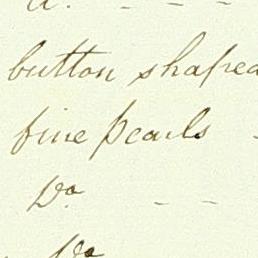 button shaped
fine pearls -
Do. - -
Do.